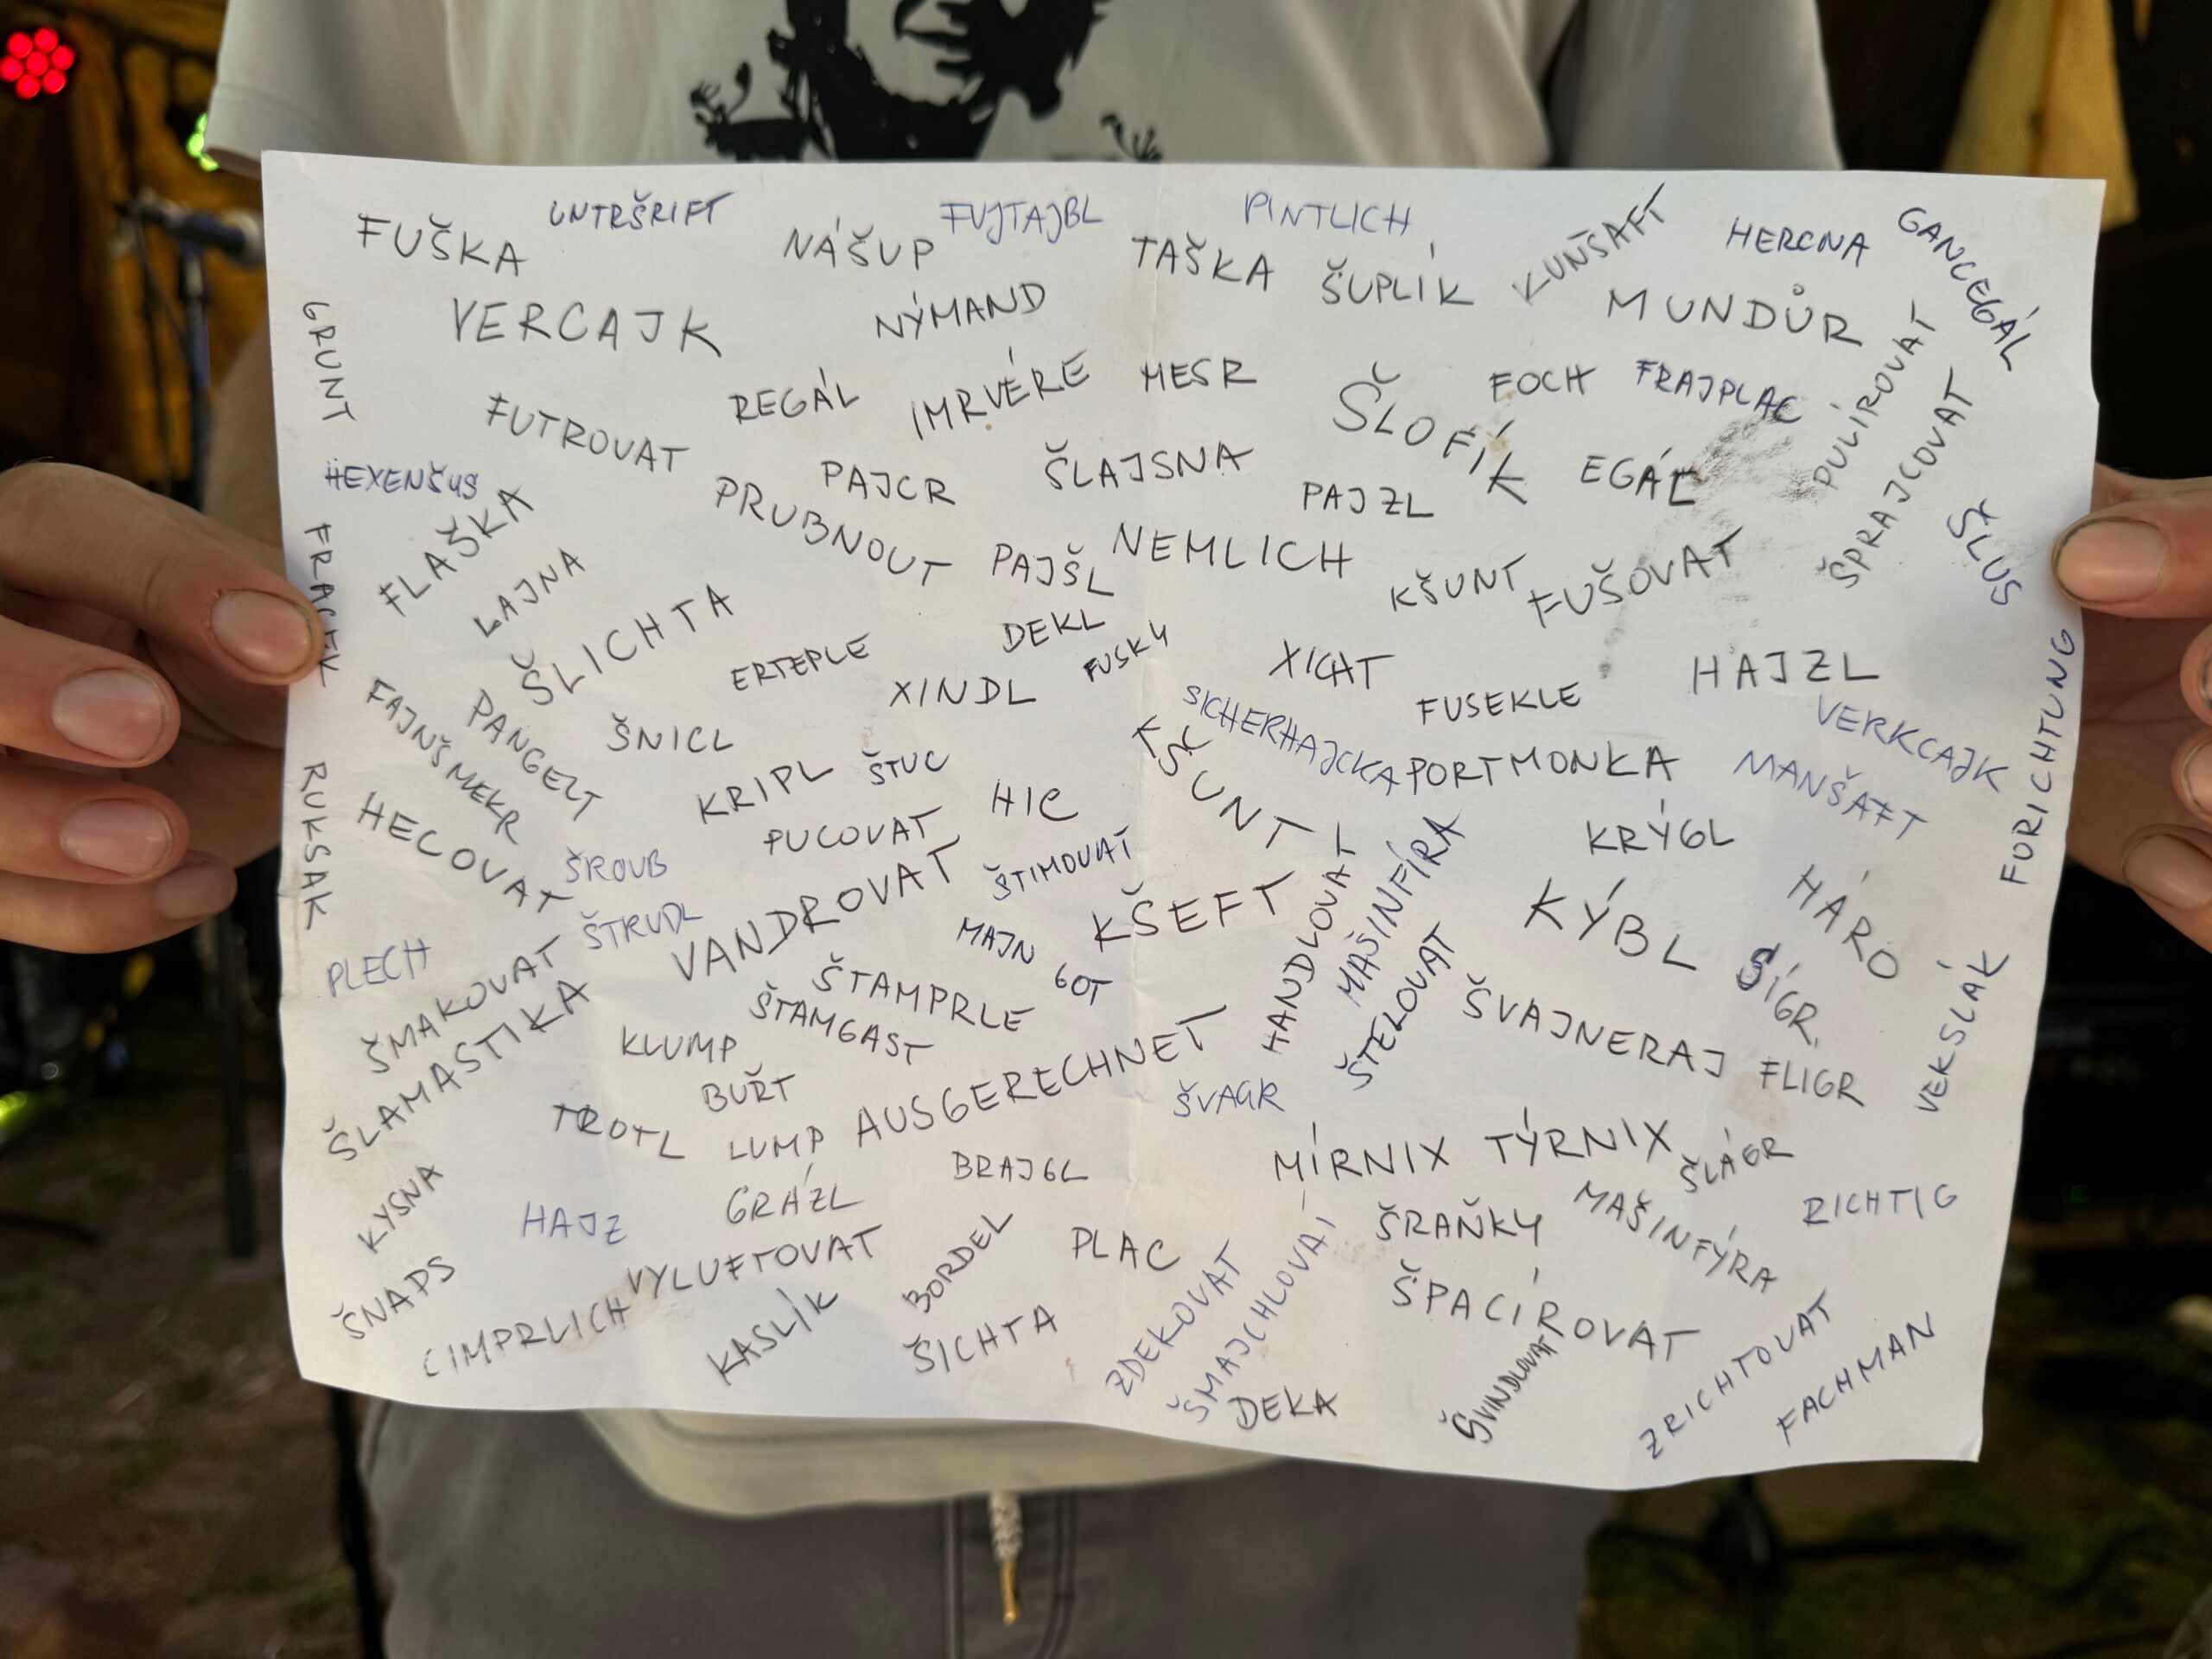 FUŠKA
UNTRŠRIFT
NÁŠUP
FUJTAJBL
TAŠKA
PINTLICH
ŠUPLÍK
KUNŠAFT
HERCNA
GANCEGÁL
GRUNT
VERCAJK
NÝMAND
MUNDŮR
FUTROVAT
REGÁL
IMRVÉRE
MESR
ŠLOFÍK
FOCH
FRAJPLAC
PULÍROVAT
ŠPRAJCOVAT
HEXENŠUS
FLAŠKA
PRUBNOUT
PAJCR
ŠLAJSNA
PAJZL
EGÁL
ŠLUS
FRACEK
LAJNA
PAJŠL
NEMLICH
KŠUNT
FUŠOVAT
ŠLICHTA
ERTEPLE
DEKL
FUSKY
XICHT
HAJZL
FORICHTUNG
FAJNŠMEKR
PANGELT
ŠNICL
XINDL
SICHERHAJCKA
FUSEKLE
VERKCAJK
RUKSAK
HECOVAT
KRIPL
ŠTUC
HIC
KŠUNT
PORTMONKA
MANŠAFT
ŠROUB
PUCOVAT
ŠTIMOVAT
MAŠINFÍRA
KRÝGL
PLECH
ŠTRUDL
VANDROVAT
MAJN GOT
KŠEFT
HANDLOVAT
ŠTELOVAT
KÝBL
HÁRO
ŠMAKOVAT
ŠLAMASTIKA
ŠTAMPRLE
ŠTAMGAST
ŠVAJNERAJ
ŠÍGR
FLÍGR
VEKSLÁK
KLUMP
BUŘT
AUSGERECHNET
ŠVAGR
TROTL
LUMP
BRAJGL
MÍRNIX TÝRNIX
ŠLÁGR
KYSNA
HAJZ
GRÁZL
ŠRAŇKY
MAŠINFÝRA
RICHTIG
ŠNAPS
VYLUFTOVAT
BORDEL
PLAC
ZDEKOVAT
ŠMAJCHLOVAT
ŠPACÍROVAT
CIMPRLICH
KASLÍK
ŠICHTA
DEKA
ŠVINDLOVAT
ZRICHTOVAT
FACHMAN